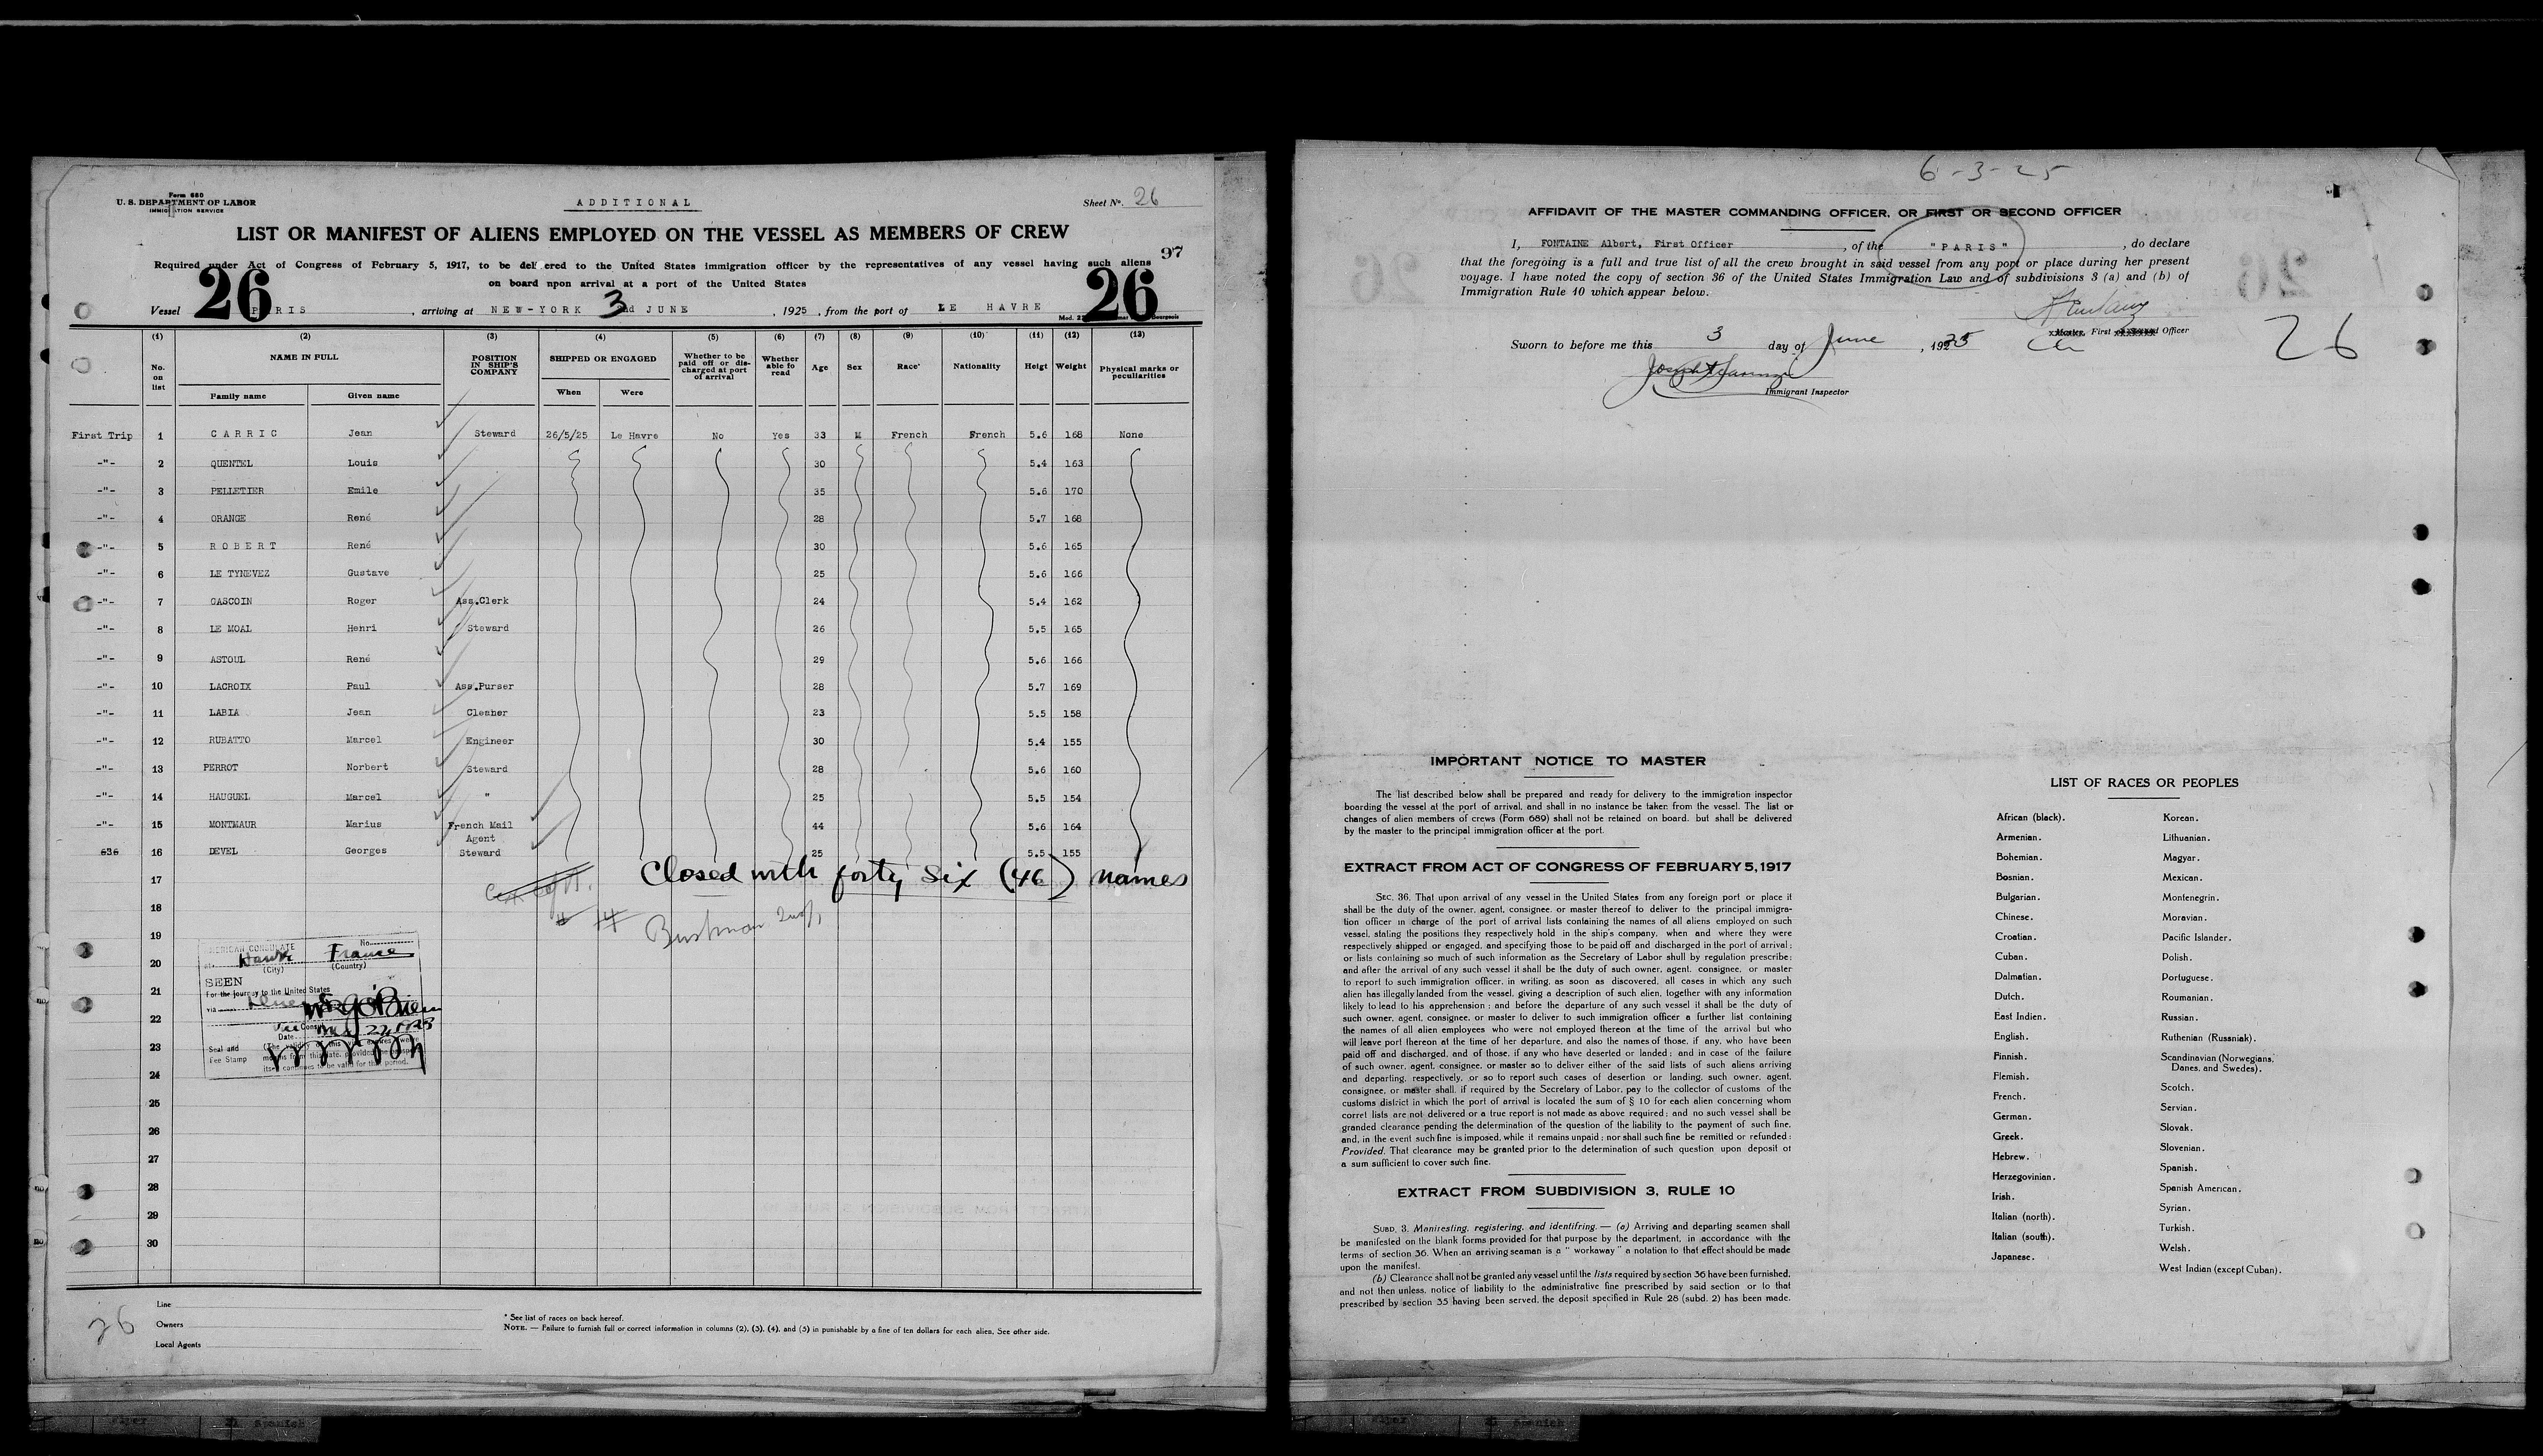 Form 680
U. S. DEPARTMENT OF LABOR
IMMIGRATION SERVICE
ADDITIONAL
Sheet No. 26
LIST OR MANIFEST OF ALIENS EMPLOYED ON THE VESSEL AS MEMBERS OF CREW
97
Required under Act of Congress of February 5, 1917, to be delivered to the United States immigration officer by the representatives of any vessel having such aliens
on board upon arrival at a port of the United States
26
26
Vessel PARIS , arriving at NEW-YORK 3nd JUNE , 1925 , from the port of LE HAVRE
(1) (2) (3) (4) (5) (6) (7) (8) (9) (10) (11) (12) (13)
No. on list NAME IN FULL POSITION IN SHIP'S COMPANY SHIPPED OR ENGAGED Whether to be paid off or discharged at port of arrival Whether able to read Age Sex Race* Nationality Heigt Weight Physical marks or peculiarities
Family name Given name When Were
First Trip 1 CARRIC Jean Steward 26/5/25 Le Havre No Yes 33 M French French 5.6 168 None
-"- 2 QUENTEL Louis 30 5.4 163
-"- 3 PELLETIER Emile 35 5.6 170
-"- 4 ORANGE René 28 5.7 168
-"- 5 ROBERT René 30 5.6 165
-"- 6 LE TYNEVEZ Gustave 25 5.6 166
-"- 7 GASCOIN Roger Ass.Clerk 24 5.4 162
-"- 8 LE MOAL Henri Steward 26 5.5 165
-"- 9 ASTOUL René 29 5.6 166
-"- 10 LACROIX Paul Ass.Purser 28 5.7 169
-"- 11 LABIA Jean Cleaner 23 5.5 158
-"- 12 RUBATTO Marcel Engineer 30 5.4 155
-"- 13 PERROT Norbert Steward 28 5.6 160
-"- 14 HAUGUEL Marcel " 25 5.5 154
-"- 15 MONTMAUR Marius French Mail Agent 44 5.6 164
636 16 DEVEL Georges Steward 25 5.5 155
17 Closed with forty six (46) names
18
19
20
21
22
23
24
25
26
27
28
29
30
AMERICAN CONSULATE
No.
at Havre France
(City) (Country)
SEEN
For the journey to the United States
via
Date
Seal and
Fee Stamp
26
Line
Owners
Local Agents
* See list of races on back hereof.
NOTE. — Failure to furnish full or correct information in columns (2), (3), (4), and (5) in punishable by a fine of ten dollars for each alien. See other side.
6-3-25
AFFIDAVIT OF THE MASTER COMMANDING OFFICER, OR FIRST OR SECOND OFFICER
I, FONTAINE Albert, First Officer , of the "PARIS" , do declare
that the foregoing is a full and true list of all the crew brought in said vessel from any port or place during her present
voyage. I have noted the copy of section 36 of the United States Immigration Law and of subdivisions 3 (a) and (b) of
Immigration Rule 10 which appear below.
Master, First or Second Officer
26
Sworn to before me this 3 day of June , 1925
Immigrant Inspector
IMPORTANT NOTICE TO MASTER
The list described below shall be prepared and ready for delivery to the immigration inspector
boarding the vessel at the port of arrival, and shall in no instance be taken from the vessel. The list or
changes of alien members of crews (Form 689) shall not be retained on board, but shall be delivered
by the master to the principal immigration officer at the port.
EXTRACT FROM ACT OF CONGRESS OF FEBRUARY 5, 1917
SEC. 36. That upon arrival of any vessel in the United States from any foreign port or place it
shall be the duty of the owner, agent, consignee, or master thereof to deliver to the principal immigra-
tion officer in charge of the port of arrival lists containing the names of all aliens employed on such
vessel, stating the positions they respectively hold in the ship's company, when and where they were
respectively shipped or engaged, and specifying those to be paid off and discharged in the port of arrival;
or lists containing so much of such information as the Secretary of Labor shull by regulation prescribe;
and after the arrival of any such vessel it shall be the duty of such owner, agent, consignee, or master
to report to such immigration officer, in writing, as soon as discovered, all cases in which any such
alien has illegally landed from the vessel, giving a description of such alien, together with any information
likely to lead to his apprehension; and before the departure of any such vessel it shall be the duty of
such owner, agent, consignee, or master to deliver to such immigration officer a further list containing
the names of all alien employees who were not employed thereon at the time of the arrival but who
will leave port thereon at the time of her departure, and also the names of those, if any, who have been
paid off and discharged, and of those, if any who have deserted or landed; and in case of the failure
of such owner, agent, consignee, or master so to deliver either of the said lists of such aliens arriving
and departing, respectively, or so to report such cases of desertion or landing, such owner, agent,
consignee, or master shall, if required by the Secretary of Labor, pay to the collector of customs of the
customs district in which the port of arrival is located the sum of § 10 for each alien concerning whom
corret lists are not delivered or a true report is not made as above required; and no such vessel shall be
granded clearance pending the determination of the question of the liability to the payment of such fine,
and, in the event such fine is imposed, while it remains unpaid; nor shall such fine be remitted or refunded:
Provided, That clearance may be granted prior to the determination of such question upon deposit of
a sum sufficient to cover such fine.
EXTRACT FROM SUBDIVISION 3, RULE 10
SUBD. 3. Maniresting, registering, and identifring. — (a) Arriving and departing seamen shall
be manifested on the blank forms provided for that purpose by the department, in accordance with the
terms of section 36. When an arriving seaman is a " workaway " a notation to that effect should be made
upon the manifest.
(b) Clearance shall not be granted any vessel until the lists required by section 36 have been furnished,
and not then unless, notice of liability to the administrative fine prescribed by said section or to that
prescribed by section 35 having been served, the deposit specified in Rule 28 (subd. 2) has been made.
LIST OF RACES OR PEOPLES
African (black).
Armenian.
Bohemian.
Bosnian.
Bulgarian.
Chinese.
Croatian.
Cuban.
Dalmatian.
Dutch.
East Indien.
English.
Finnish.
Flemish.
French.
German.
Greek.
Hebrew.
Herzegovinian.
Irish.
Italian (north).
Italian (south).
Japanese.
Korean.
Lithuanian.
Magyar.
Mexican.
Montenegrin.
Moravian.
Pacific Islander.
Polish.
Portuguese.
Roumanian.
Russian.
Ruthenian (Russniak).
Scandinavian (Norwegians,
Danes, and Swedes).
Scotch.
Servian.
Slovak.
Slovenian.
Spanish.
Spanish American.
Syrian.
Turkish.
Welsh.
West Indian (except Cuban).